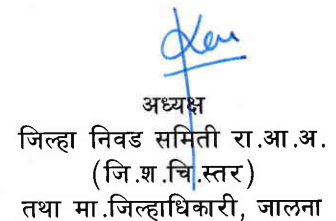 अध्यक्ष
जिल्हा निवड समिती रा.आ.अ.
(जि.श.चि.स्तर)
तथा मा.जिल्हाधिकारी, जालना